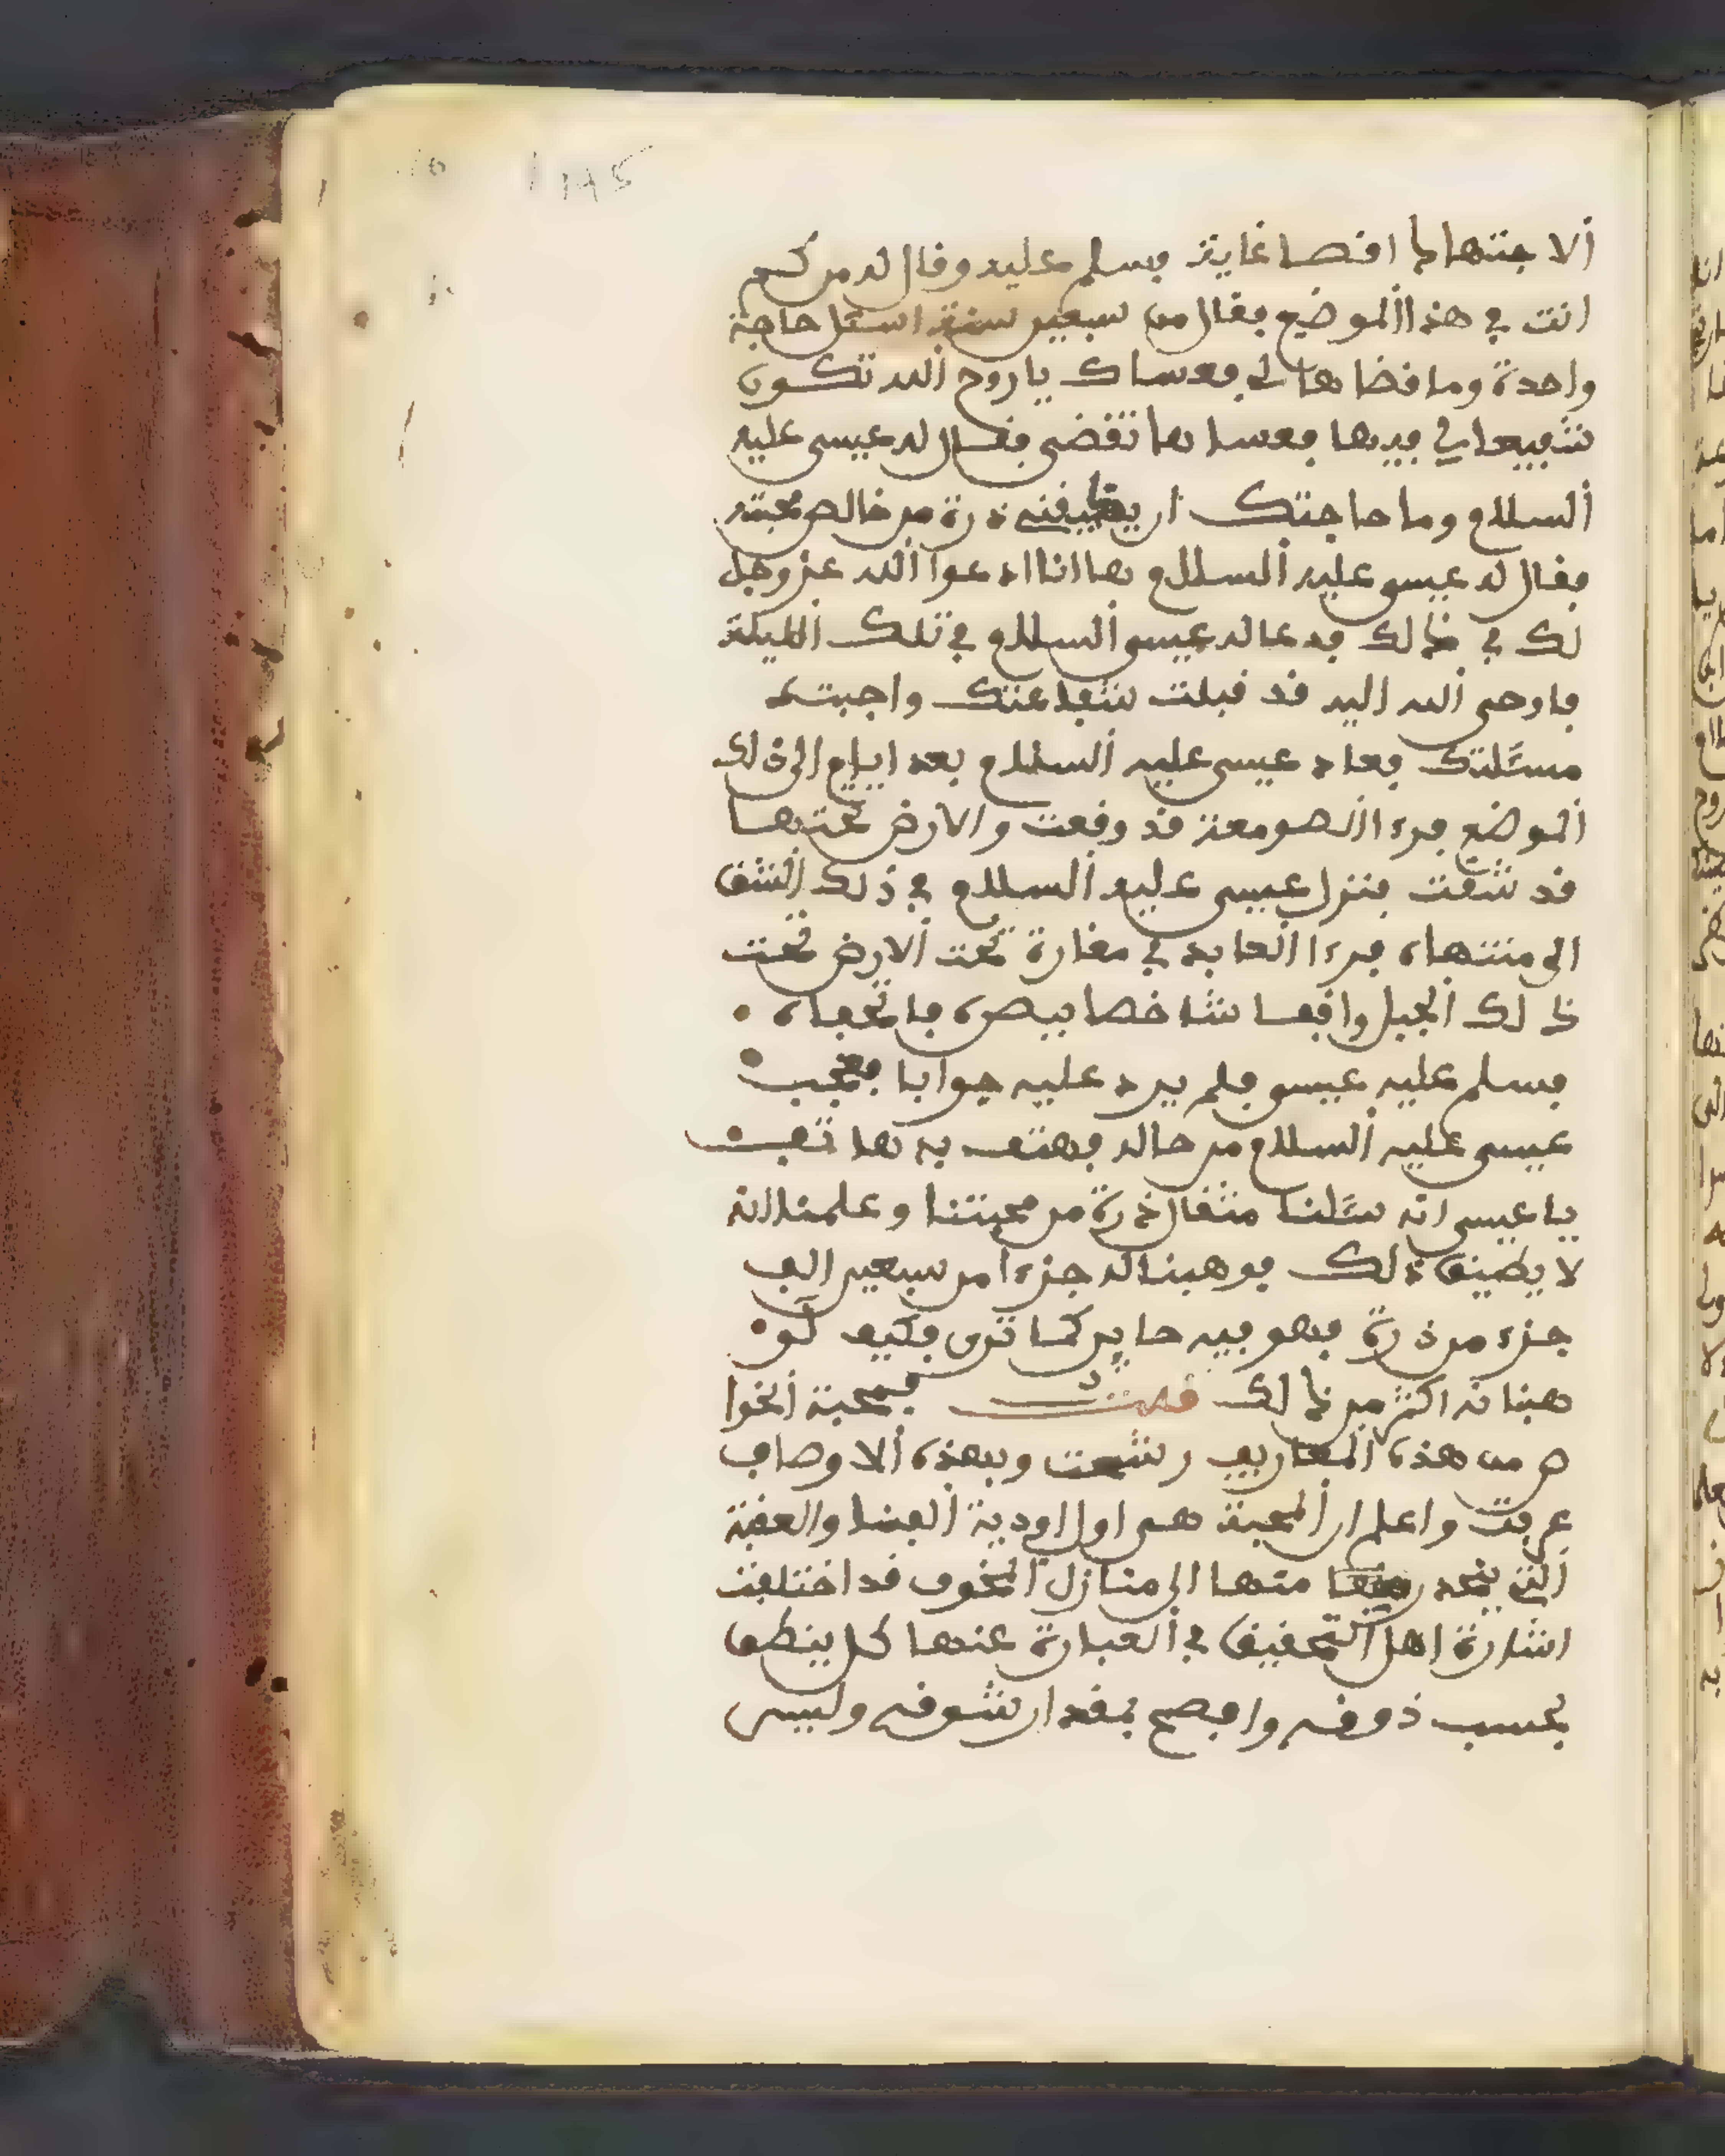 الاجتهاد اقصا غاية فسلم عليه وقال له من كم
انت في هذا الموضع فقال من سبعين سنة اسئل حاجة
واحدة وما قضاها لي فعساك يا روح الله تكون
شفيعا لي فيها فعساها تقضى فقال له عيسى عليه
السلام وما حاجتك ان يذيقني ذرة من خالص محبته
فقال له عيسى عليه السلام ها انا ادعوا الله عز وجل
لك في ذالك فدعا له عيسى السلام في تلك الليلة
فاوحى الله اليه قد قبلت شفاعتك واجبت
مسئلتك فعاد عيسى عليه السلام بعد ايام الى ذلك
الموضع فرءا الصومعة قد وقعت والارض تحتها
قد شقت فنزل عيسى عليه السلام في ذلك الشق
الى منتهاه فرءا العابد في مغارة تحت الارض تحت
ذالك الجبل واقفا شاخصا ببصره فاتحفاه
فسلم عليه عيسى فلم يرد عليه جوابا فعجب
عيسى عليه السلام من حاله فهتف به هاتف
يا عيسى انه سئلنا مثقال ذرة من محبتنا وعلمنا انه
لا يطيق ذلك فوهبنا له جزءا من سبعين الف
جزء من ذرة فهو فيه حاير كما ترى فكيف لو
هبناه اكثر من ذالك قلت فمحبة الخوا
ص من هذه المعاريف رشحت وبهذه الاوصاف
عرفت واعلم ان المحبة هي اول اودية الفنا والعقبة
التي ينحدر منها الى منازل المخوف قد اختلفت
اشارة اهل التحقيق في العبارة عنها كل ينطق
بحسب ذوقه وافصح بمقدار شوقه وليس